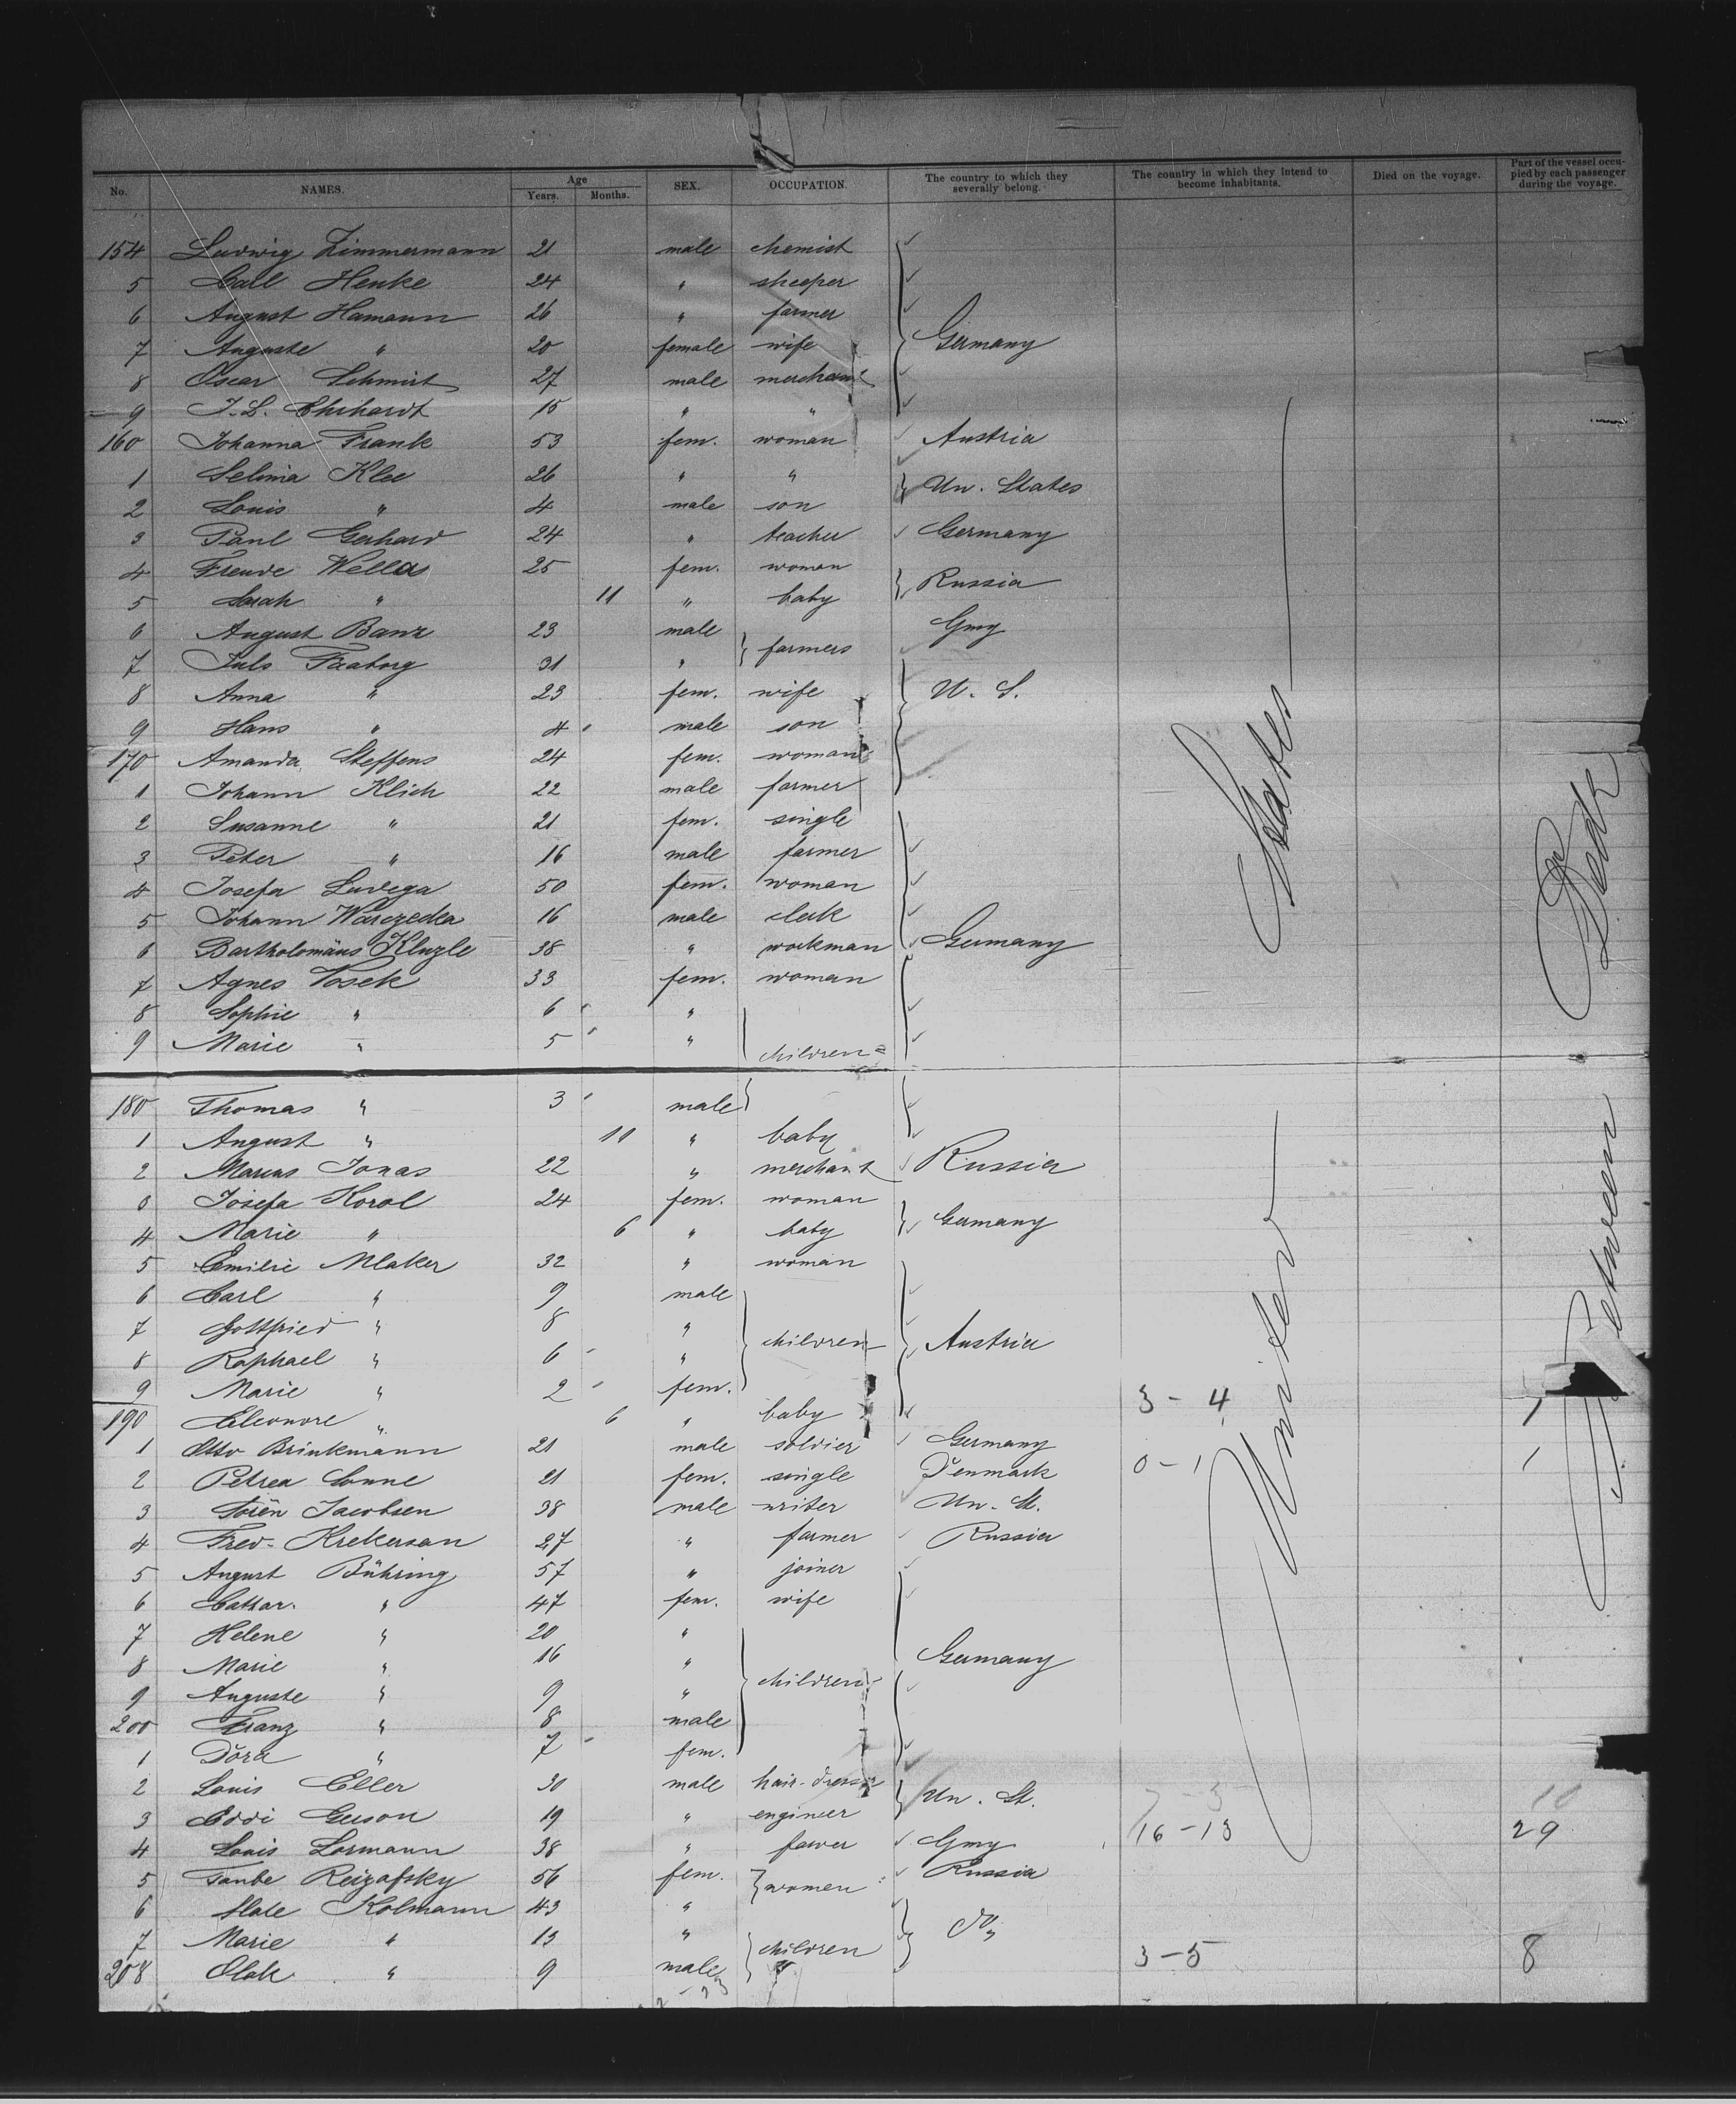 No. NAMES. Age Years. Months. SEX. OCCUPATION. The country to which they severally belong. The country in which they intend to become inhabitants. Died on the voyage. Part of the vessel occupied by each passenger during the voyage.
154 Ludwig Zimmermann 21 male chemist
5 Carl Henke 24 " sheeper
6 August Hamann 26 " farmer
7 Auguste " 20 female wife Germany
8 Oscar Schmidt 27 male merchant
9 J. L. Ehrhardt 15 " "
160 Johanna Frank 53 fem. woman Austria
1 Selma Klee 26 " " Un. States
2 Louis " 4 male son
3 Paul Gerhard 24 " teacher Germany
4 Freude 25 fem. woman Russia
5 Sarah " 11 " baby
6 August Banz 23 male farmers Gmy
7 Juls Faaborg 31 "
8 Anna " 23 fem. wife U. S.
9 Hans " 4 male son
170 Amanda Steffens 24 fem. woman
1 Johann Klich 22 male farmer
2 Susanne " 21 fem. single
3 Peter " 16 male farmer
4 Josefa 50 fem. woman
5 Johann Warczedka 16 male clerk
6 Bartholomäus Kluzle 38 " workman Germany
7 Agnes Vosek 33 fem. woman
8 Sophie " 6 "
9 Marie " 5 " children
180 Thomas " 3 male
1 August " 11 " baby
2 Marcus Jonas 22 " merchant Russia
3 Josefa Korol 24 fem. woman
4 Marie " 6 " baby Germany
5 Emilie Mlaker 32 " woman
6 Carl " 9 male
7 Gottfried " 8 " children Austria
8 Raphael " 6 "
9 Marie " 2 fem. 3 - 4 7
190 Eleonore " 6 " baby
1 Otto Brinkmann 21 male soldier Germany
2 Petrea Sonne 21 fem. single Denmark 0 - 1 1
3 Sören Jacobsen 38 male writer Un. St.
4 Fred. Krekersan 27 " farmer Russia
5 August Bühring 57 " joiner
6 Cathar. " 47 fem. wife
7 Helene " 20 "
8 Marie " 16 " children Germany
9 Auguste " 9 "
200 Franz " 8 male
1 Dora " 7 fem.
2 Louis Eller 30 male hair-dresser Un. St. 7 - 3 10
3 Eddi Gerson 19 " engineer
4 Louis Lormann 38 " Gmy 16 - 13 29
5 Taube Reizafsky 56 fem. women Russia
6 Kolmann 43 "
7 Marie " 13 " children do
208 " 9 male 3 - 5 8
United States
Between Deck